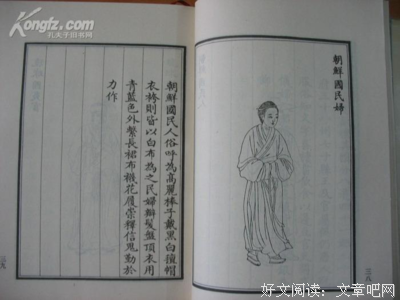 Kongfz.com
孔夫子旧书网
朝鮮國民婦
三八
朝鮮國民人俗呼為高麗棒子戴黑白氊帽
衣袴則皆以白布為之民婦辮髮盤頂衣用
青藍色外繫長裙布襪花履崇釋信鬼勤於
力作
三九
好文阅读：文章吧网